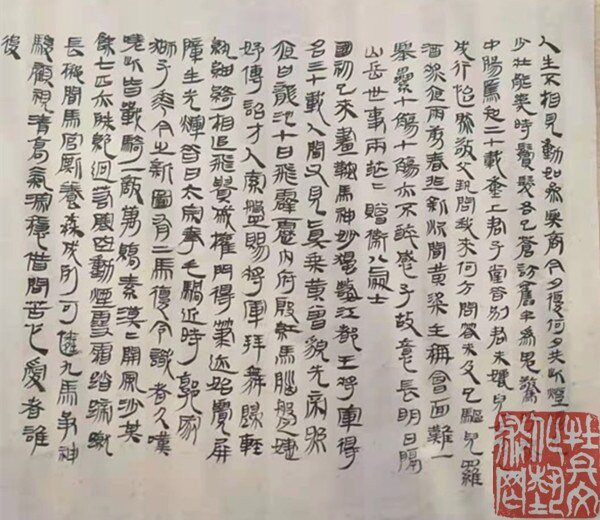 人生不相見動如參與商今夕復何夕共此燈
少壯能幾時鬢髮各已蒼訪舊半為鬼驚
中腸焉知二十載重上君子堂昔別君未婚兒
成行怡然敬父執問我來何方問答未及已驅兒羅
酒漿夜雨剪春韭新炊間黃粱主稱會面難一
舉累十觴十觴亦不醉感子故意長明日隔
山岳世事兩茫二 贈衛八處士
國初已來畫鞍馬神妙獨數江都王將軍得
名三十載人間又見真乘黃曾貌先帝照
夜白龍池十日飛霹靂內府殷紅馬腦盤婕
妤傳詔才人索盤賜將軍拜舞歸輕
紈細綺相追飛貴戚權門得筆跡始覺屏
障生光輝昔日太宗拳毛騧近時郭家
獅子花今之新圖有二馬復令識者久嘆
嗟此皆戰騎一敵萬縞素漠二開風沙其
餘七匹亦殊絕迥若寒空動煙雪霜踏蹄蹴
長楸間馬官廝養森成列可憐九馬爭神
駿顧視清高氣深穩借問苦心愛者誰
後
杜兵文化藝術网